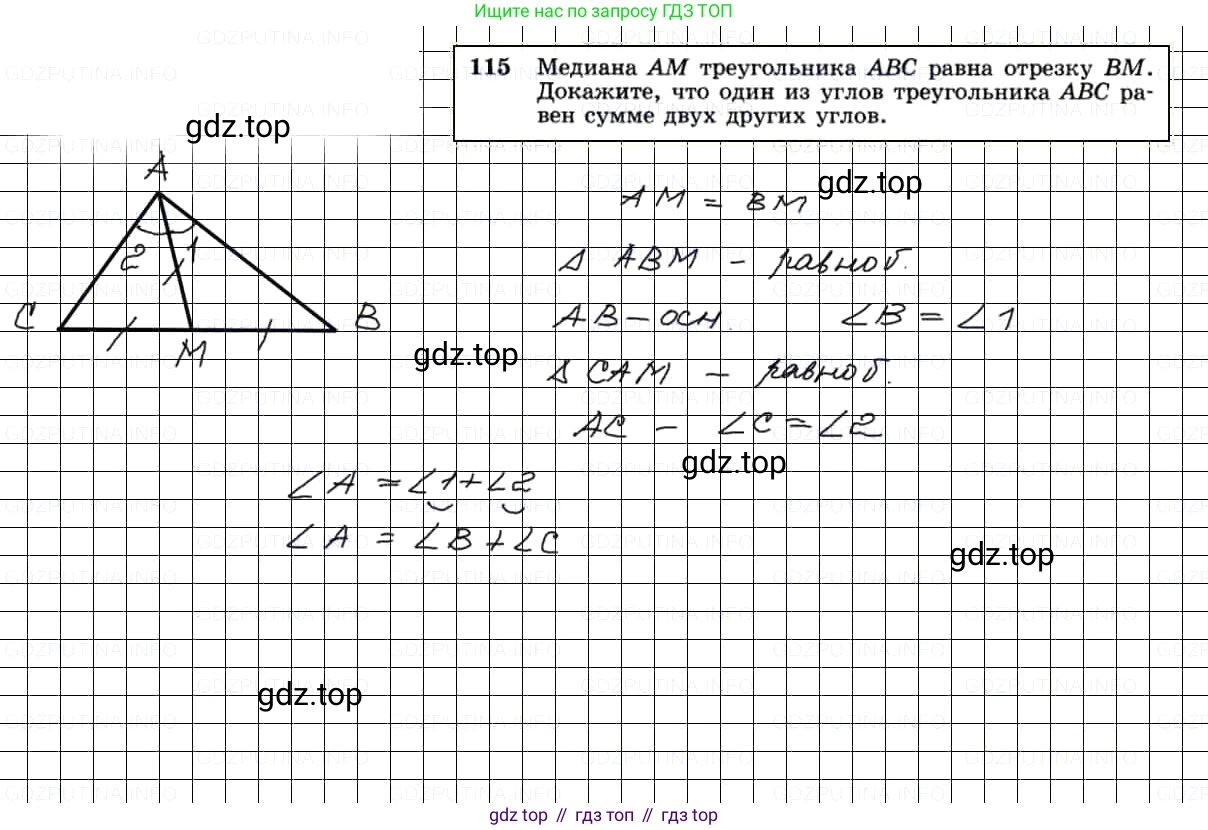 Ищите нас по запросу ГДЗ ТОП
115 Медиана AM треугольника ABC равна отрезку BM.
Докажите, что один из углов треугольника ABC ра-
вен сумме двух других углов.
gdz.top
A
2 1
C
M
B
AM = BM
gdz.top
Δ ABM - равноб.
AB - осн. ∠B = ∠1
gdz.top
Δ CAM - равноб.
AC - ∠C = ∠2
gdz.top
∠A = ∠1 + ∠2
∠A = ∠B + ∠C
gdz.top
gdz.top
GDZPUTINA.INFO
gdz top // гдз топ // гдз top